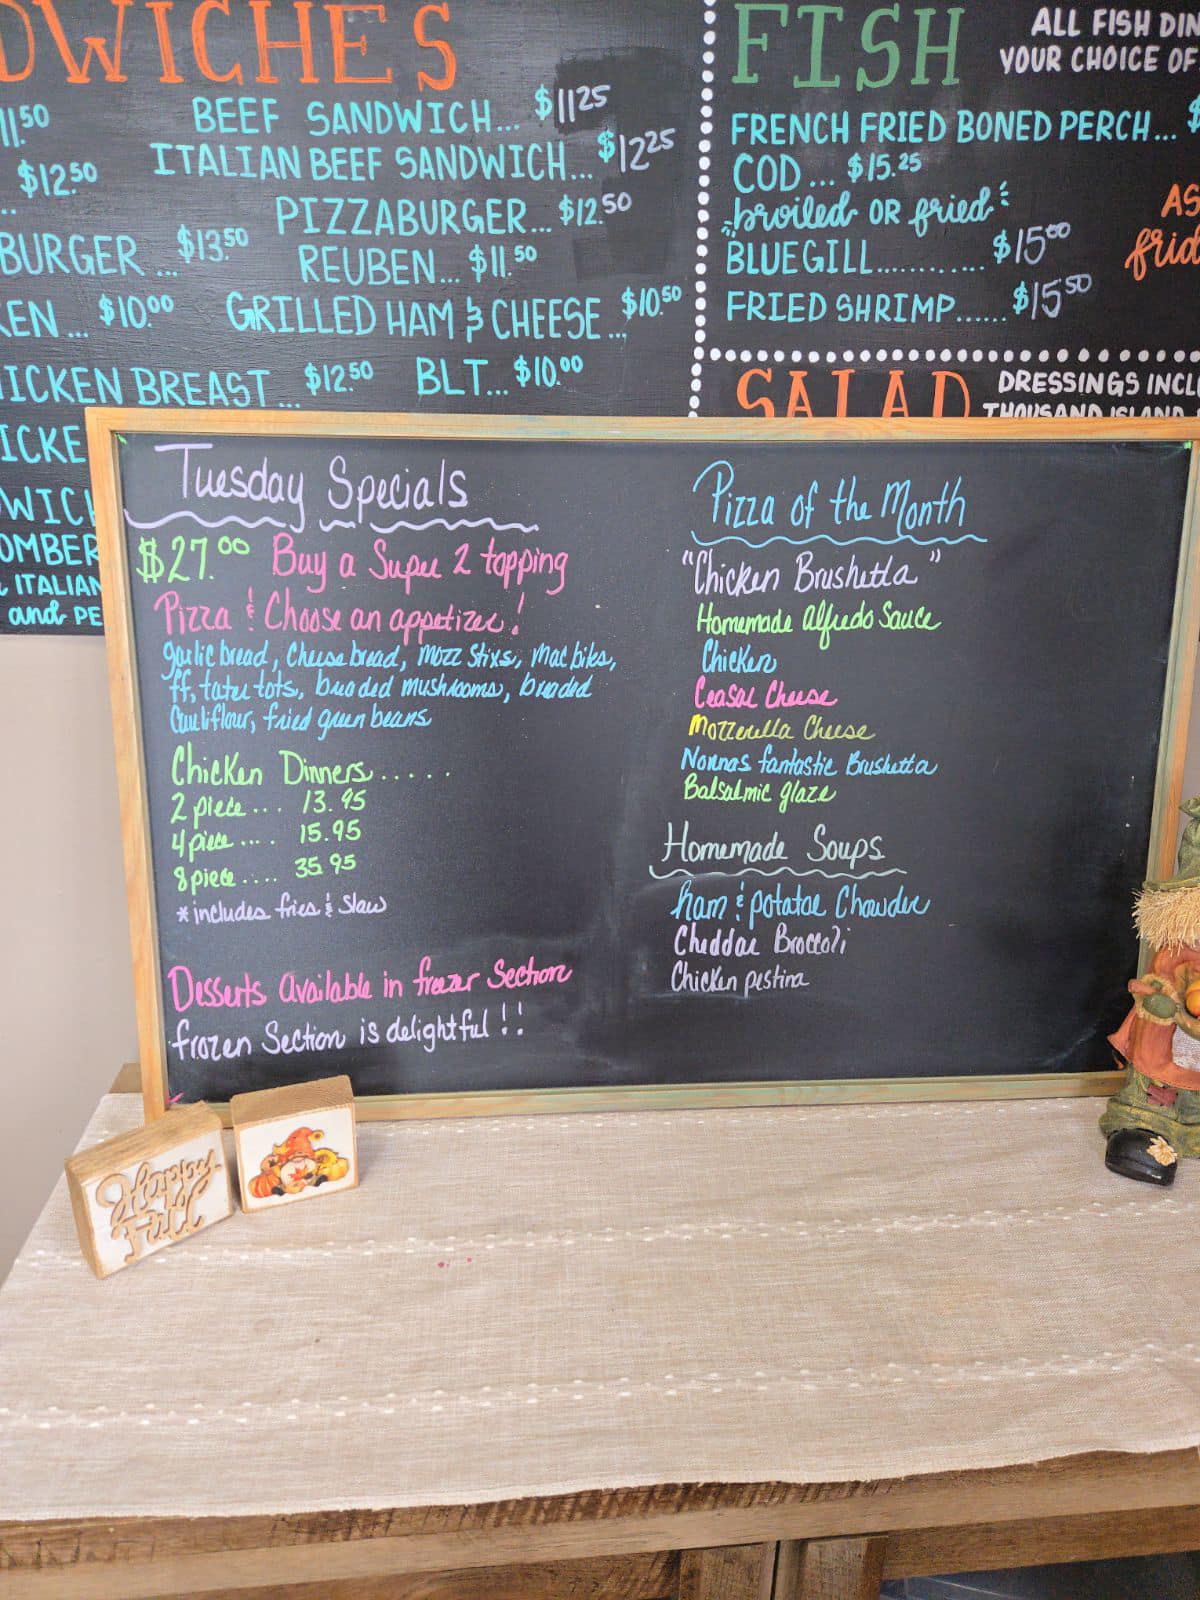 DWICHES
11.50
BEEF SANDWICH... $11.25
$12.50
ITALIAN BEEF SANDWICH... $12.25
PIZZABURGER... $12.50
BURGER... $13.50
REUBEN... $11.50
KEN... $10.00
GRILLED HAM & CHEESE... $10.50
HICKEN BREAST... $12.50
BLT... $10.00
ICKE
WICH
OMBER
& ITALIAN
and PE
FISH
ALL FISH DIN
YOUR CHOICE OF
FRENCH FRIED BONED PERCH... $
COD... $15.25
broiled OR fried
BLUEGILL........... $15.00
FRIED SHRIMP...... $15.50
AS
frid
SALAD
DRESSINGS INCL
THOUSAND ISLAND
Tuesday Specials
$27.00 Buy a Super 2 topping
Pizza & Choose an appetizer!
garlic bread, Cheese bread, Mozz Stixs, Mac bites,
ff, tater tots, breaded mushrooms, breaded
Cauliflour, fried green beans
Chicken Dinners.....
2 piece... 13.95
4 piece.... 15.95
8 piece.... 35.95
*includes fries & Slaw
Desserts Available in frezer Section
frozen Section is delightful!!
Pizza of the Month
"Chicken Brushetta"
Homemade Alfredo Sauce
Chicken
Ceasar Cheese
Mozzerella Cheese
Nonnas fantastic Brushetta
Balsalmic glaze
Homemade Soups
ham & potatoe Chowder
Cheddar Broccoli
Chicken pestina
Happy
Fall